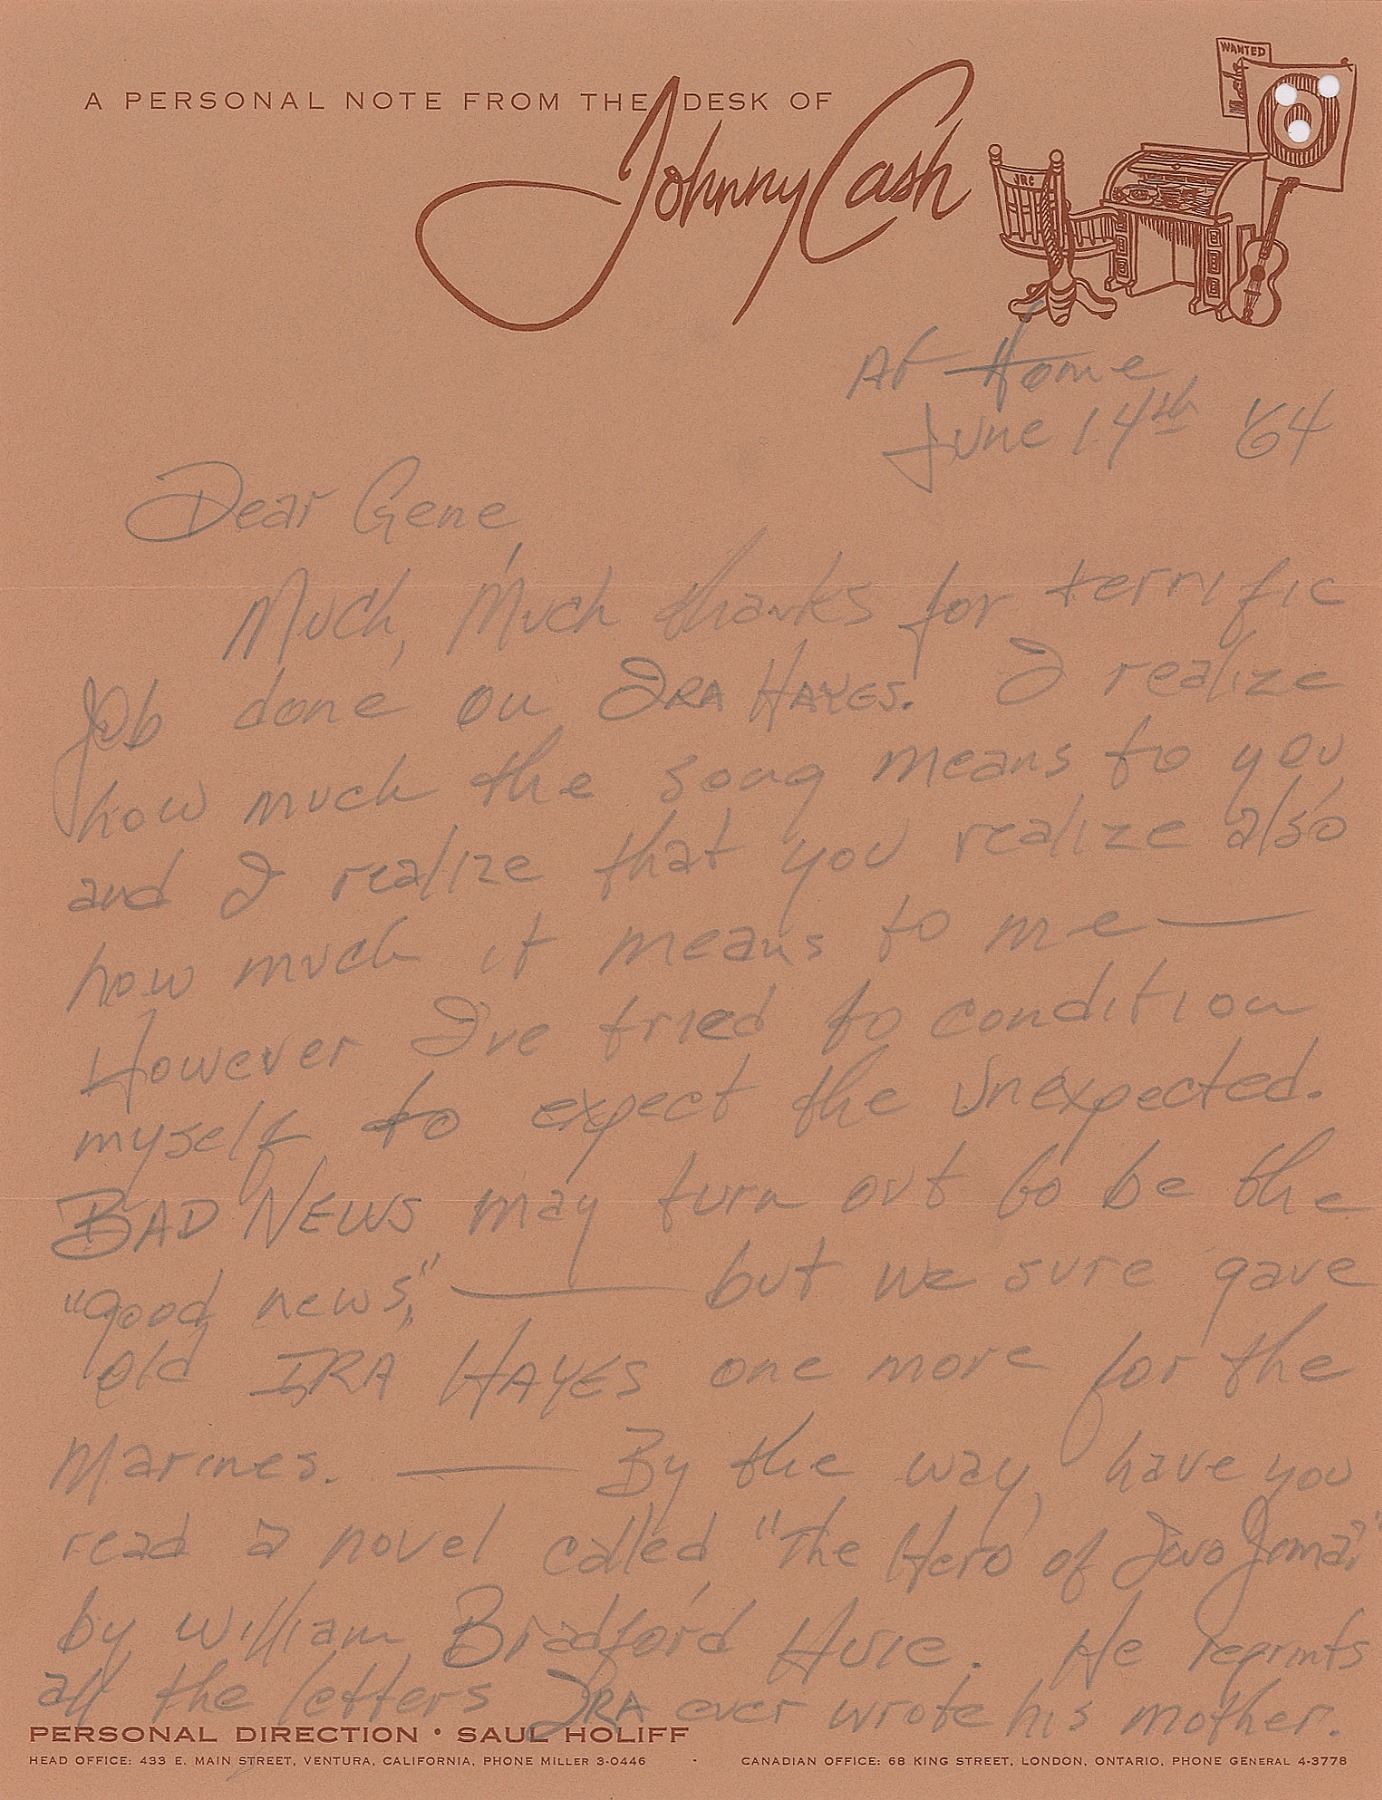 WANTED
A PERSONAL NOTE FROM THE DESK OF
Johnny Cash
JRC
At Home
June 14th '64
Dear Gene,
Much, Much thanks for terrific
job done on IRA HAYES. I realize
how much the song means to you,
and I realize that you realize also
how much it means to me —
However I've tried to condition
myself to expect the unexpected.
BAD NEWS may turn out to be the
"good news," — but we sure gave
old IRA HAYES one more for the
Marines. — By the way, have you
read a novel called "The Hero of Iwo Jima,"
by William Bradford Huie. He reprints
all the letters IRA ever wrote his mother.
PERSONAL DIRECTION • SAUL HOLIFF
HEAD OFFICE: 433 E. MAIN STREET, VENTURA, CALIFORNIA, PHONE MILLER 3-0446 - CANADIAN OFFICE: 68 KING STREET, LONDON, ONTARIO, PHONE GENERAL 4-3778